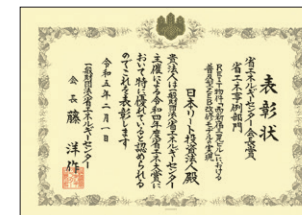 表彰状
省エネルギーセンター会長賞
省エネ事例部門
日本リート投資法人殿
貴法人は一般財団法人省エネルギーセンター
主催による令和四年度省エネ大賞に
おいて特に優れていると認められる
のでこれを表彰します
令和五年二月一日
一般財団法人省エネルギーセンター
会長 藤 洋作